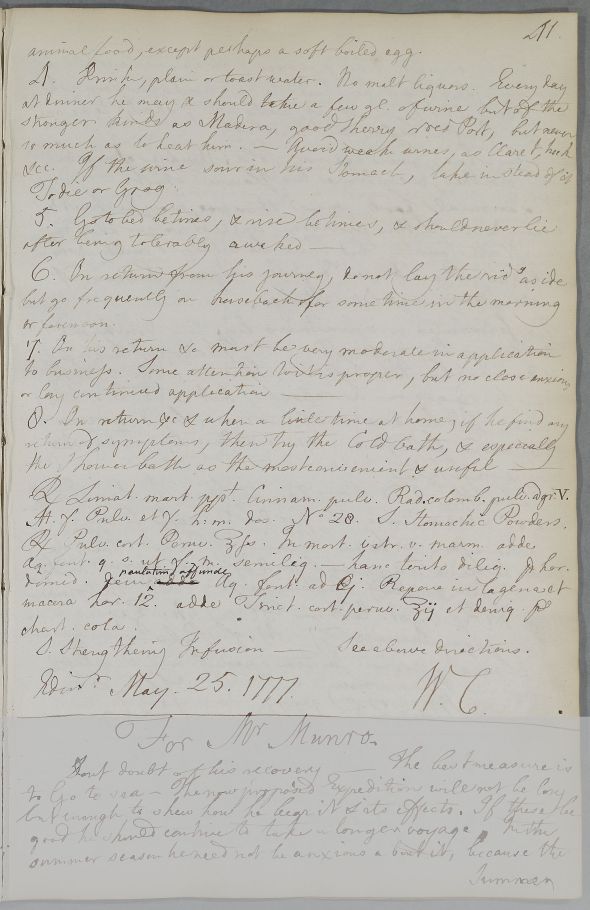 211.
animal food, except perhaps a soft boiled egg.
4. Drink, plain or toast water. No malt liquors. Every day
at dinner he may & should take a few gl. of wine but of the
stronger kinds as Madeira, good Sherry, red Port, but never
so much as to heat him. — Avoid weak wines, as Claret, hock
&c. If the wine sour in his Stomach, take instead of it
Todie or Grog.
5. Go to bed betimes, & rise betimes, & should never lie
after being tolerably awaked —
6. On return from his journey, do not lay the rid.g aside
but go frequently on horseback for some time in the morning
or forenoon.
7. On his return &c must be very moderate in application
to business. Some attention to it is proper, but no close anxious
or long continued application —
8. On return &c & when a little time at home, if he find any
return of symptoms, then try the Cold bath, & especially
the Shower bath as the most convenient & useful —
℞ Limat. mart. ppt. Cinnam. pulv. Rad. colomb. pulv. a gr. V.
M. f. Pulv. et f. h. m. dos. No 28. S. Stomachic Powders.
℞ Pulv. cort. Peruv. ℥ss. In mort. vitr. v. marm. adde
Aq. font. q. s. ut f. m. semiliq. — hanc terito dilig. p hor.
dimid. Dein paulatim affunde Aq. font. ad ℔j. Repone in lagena et
macera hor. 12. adde Tinct. cort. peruv. ℥ij et deinq. p
chart. cola.
S. Strengthening Infusion — See above directions.
Edinr. May. 25. 1777. W. C.
For Mr Munro.
I out doubt of his recovery — The best measure is
to Go to sea — The now proposed Expedition will not be long
but enough to shew how he bears it & its effects. If these be
good he should continue to take a longer voyage. In the
summer season he need not be anxious about it, because the
Summer